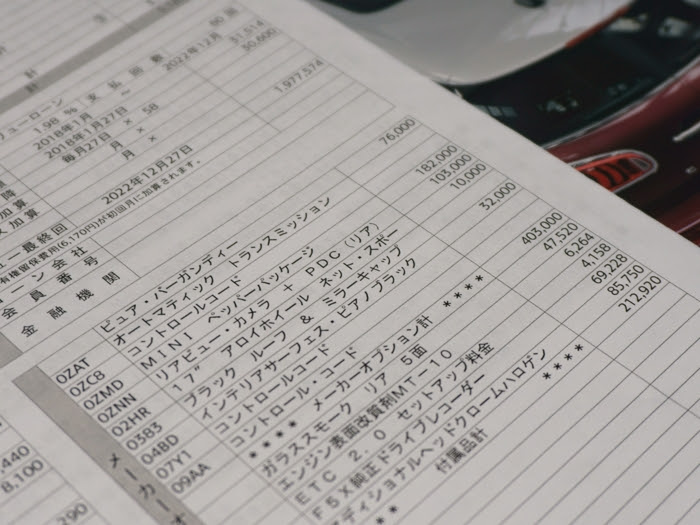 計
計
ューローン
1.98 % 支払回数 60 回
2018年1月 ～ 2022年12月 31,514
2018年1月27日 50,600
毎月27日 × 58
月 ×
月 × 1,977,574
加算
加算
ー最終回 2022年12月27日
有権留保費用(6,170円)が初回月に加算されます。
ーン会社
会員番号
金融機関
ピュア・バーガンディー 76,000
0ZAT オートマティック トランスミッション 182,000
0ZCB コントロールコード 103,000
0ZMD MINI ペッパーパッケージ 10,000
0ZNN リアビュー・カメラ + PDC (リア)
02HR 17" アロイホイール ネット・スポー 32,000
0383 ブラック ルーフ & ミラーキャップ
04BD インテリアサーフェス・ピアノブラック
07Y1 コントロールコード
09AA コントロール・コード
**** メーカーオプション計 **** 403,000
ガラススモーク リア 5面 47,520
エンジン表面改質剤MT-10 6,264
ETC 2.0 セットアップ料金 4,158
F5X純正ドライブレコーダー 69,228
ディショナルヘッドクロームハロゲン 85,750
** 付属品計 **** 212,920
メーカーオ
,440
8,100
290